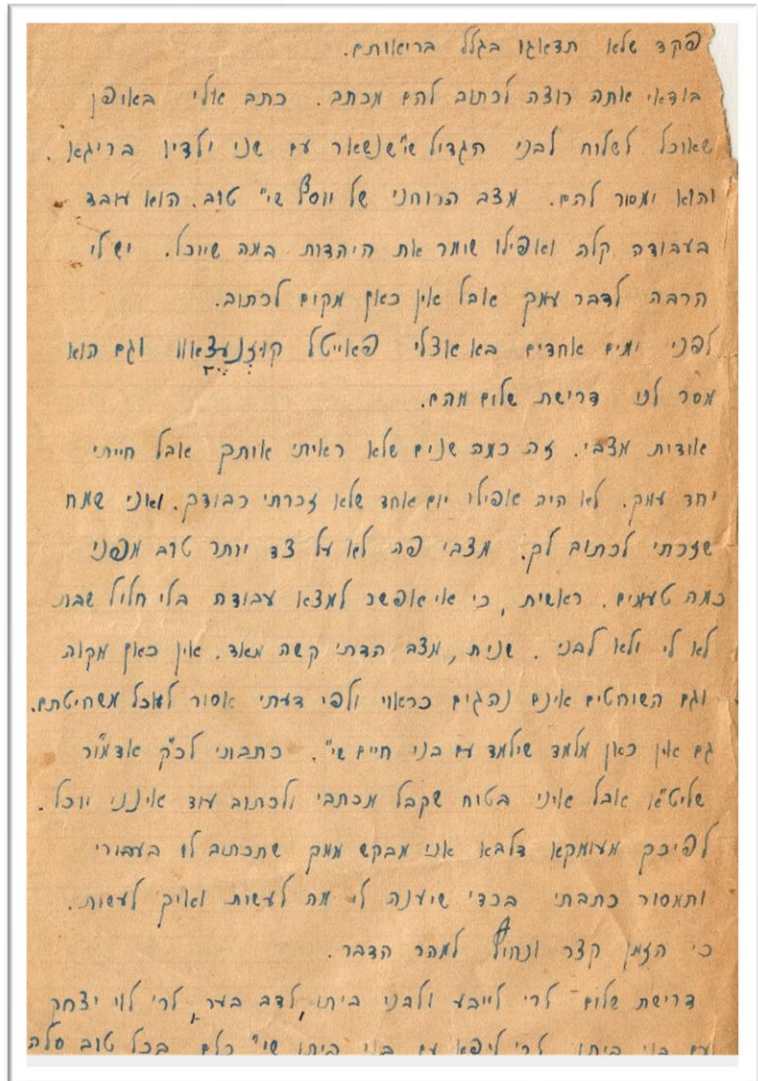 פקד שלא תדאגו בגלל בריאותם.
בודאי אתה רוצה לכתוב להם מכתב. כתב אלי באופן
שאוכל לשלוח לבני הגדיל שי' שנשאר עם שני ילדיו בריגא.
והוא ימסור להם. מצב הרוחני של יוסף שי' טוב. הוא עובד
בעבודה קלה ואפילו שומר את היהדות במה שיוכל. יש לי
הרבה לדבר עמך אבל אין כאן מקום לכתוב.
לפני ימים אחדים בא אצלי פאוייטל קוזנעצאוו וגם הוא
מסר לנו דרישת שלום מהם.
אודות מצבי. זה כמה שנים שלא ראיתי אותך אבל חייתי
יחד עמך. לא היה אפילו יום אחד שלא זכרתי כבודך. ואני שמח
שזכתי לכתוב לך. מצבי פה לא על צד יותר טוב מפני
כמה טעמים. ראשית, כי אי אפשר למצא עבודה בלי חליל שבת
לא לי ולא לבני. שנית, מצב הדתי קשה מאד. אין כאן מקוה
וגם השוחטים אינם נהגים כראוי ולפי דעתי אסור לאכל משחיטתם.
גם אין כאן מלמד שילמד עם בני חיים שי'. כתבותי לכ"ק אדמו"ר
שליט"א אבל איני בטוח שקבל מכתבי ולכתוב עוד אינני יוכל.
לפיכך מעומקא דלבא אני מבקש ממך שתכתוב לו בעבורי
ותמסור כתבתי בכדי שיענה לי מה לעשות ואיך לעשות.
כי הזמן קצר ונחוץ למהר הדבר.
דרישת שלום לרי לייבע ולבני ביתו, לדב בער, לרי לוי יצחק
עם בני ביתו לרי ליפא עם בני ביתו שי' כלם בכל טוב סלה